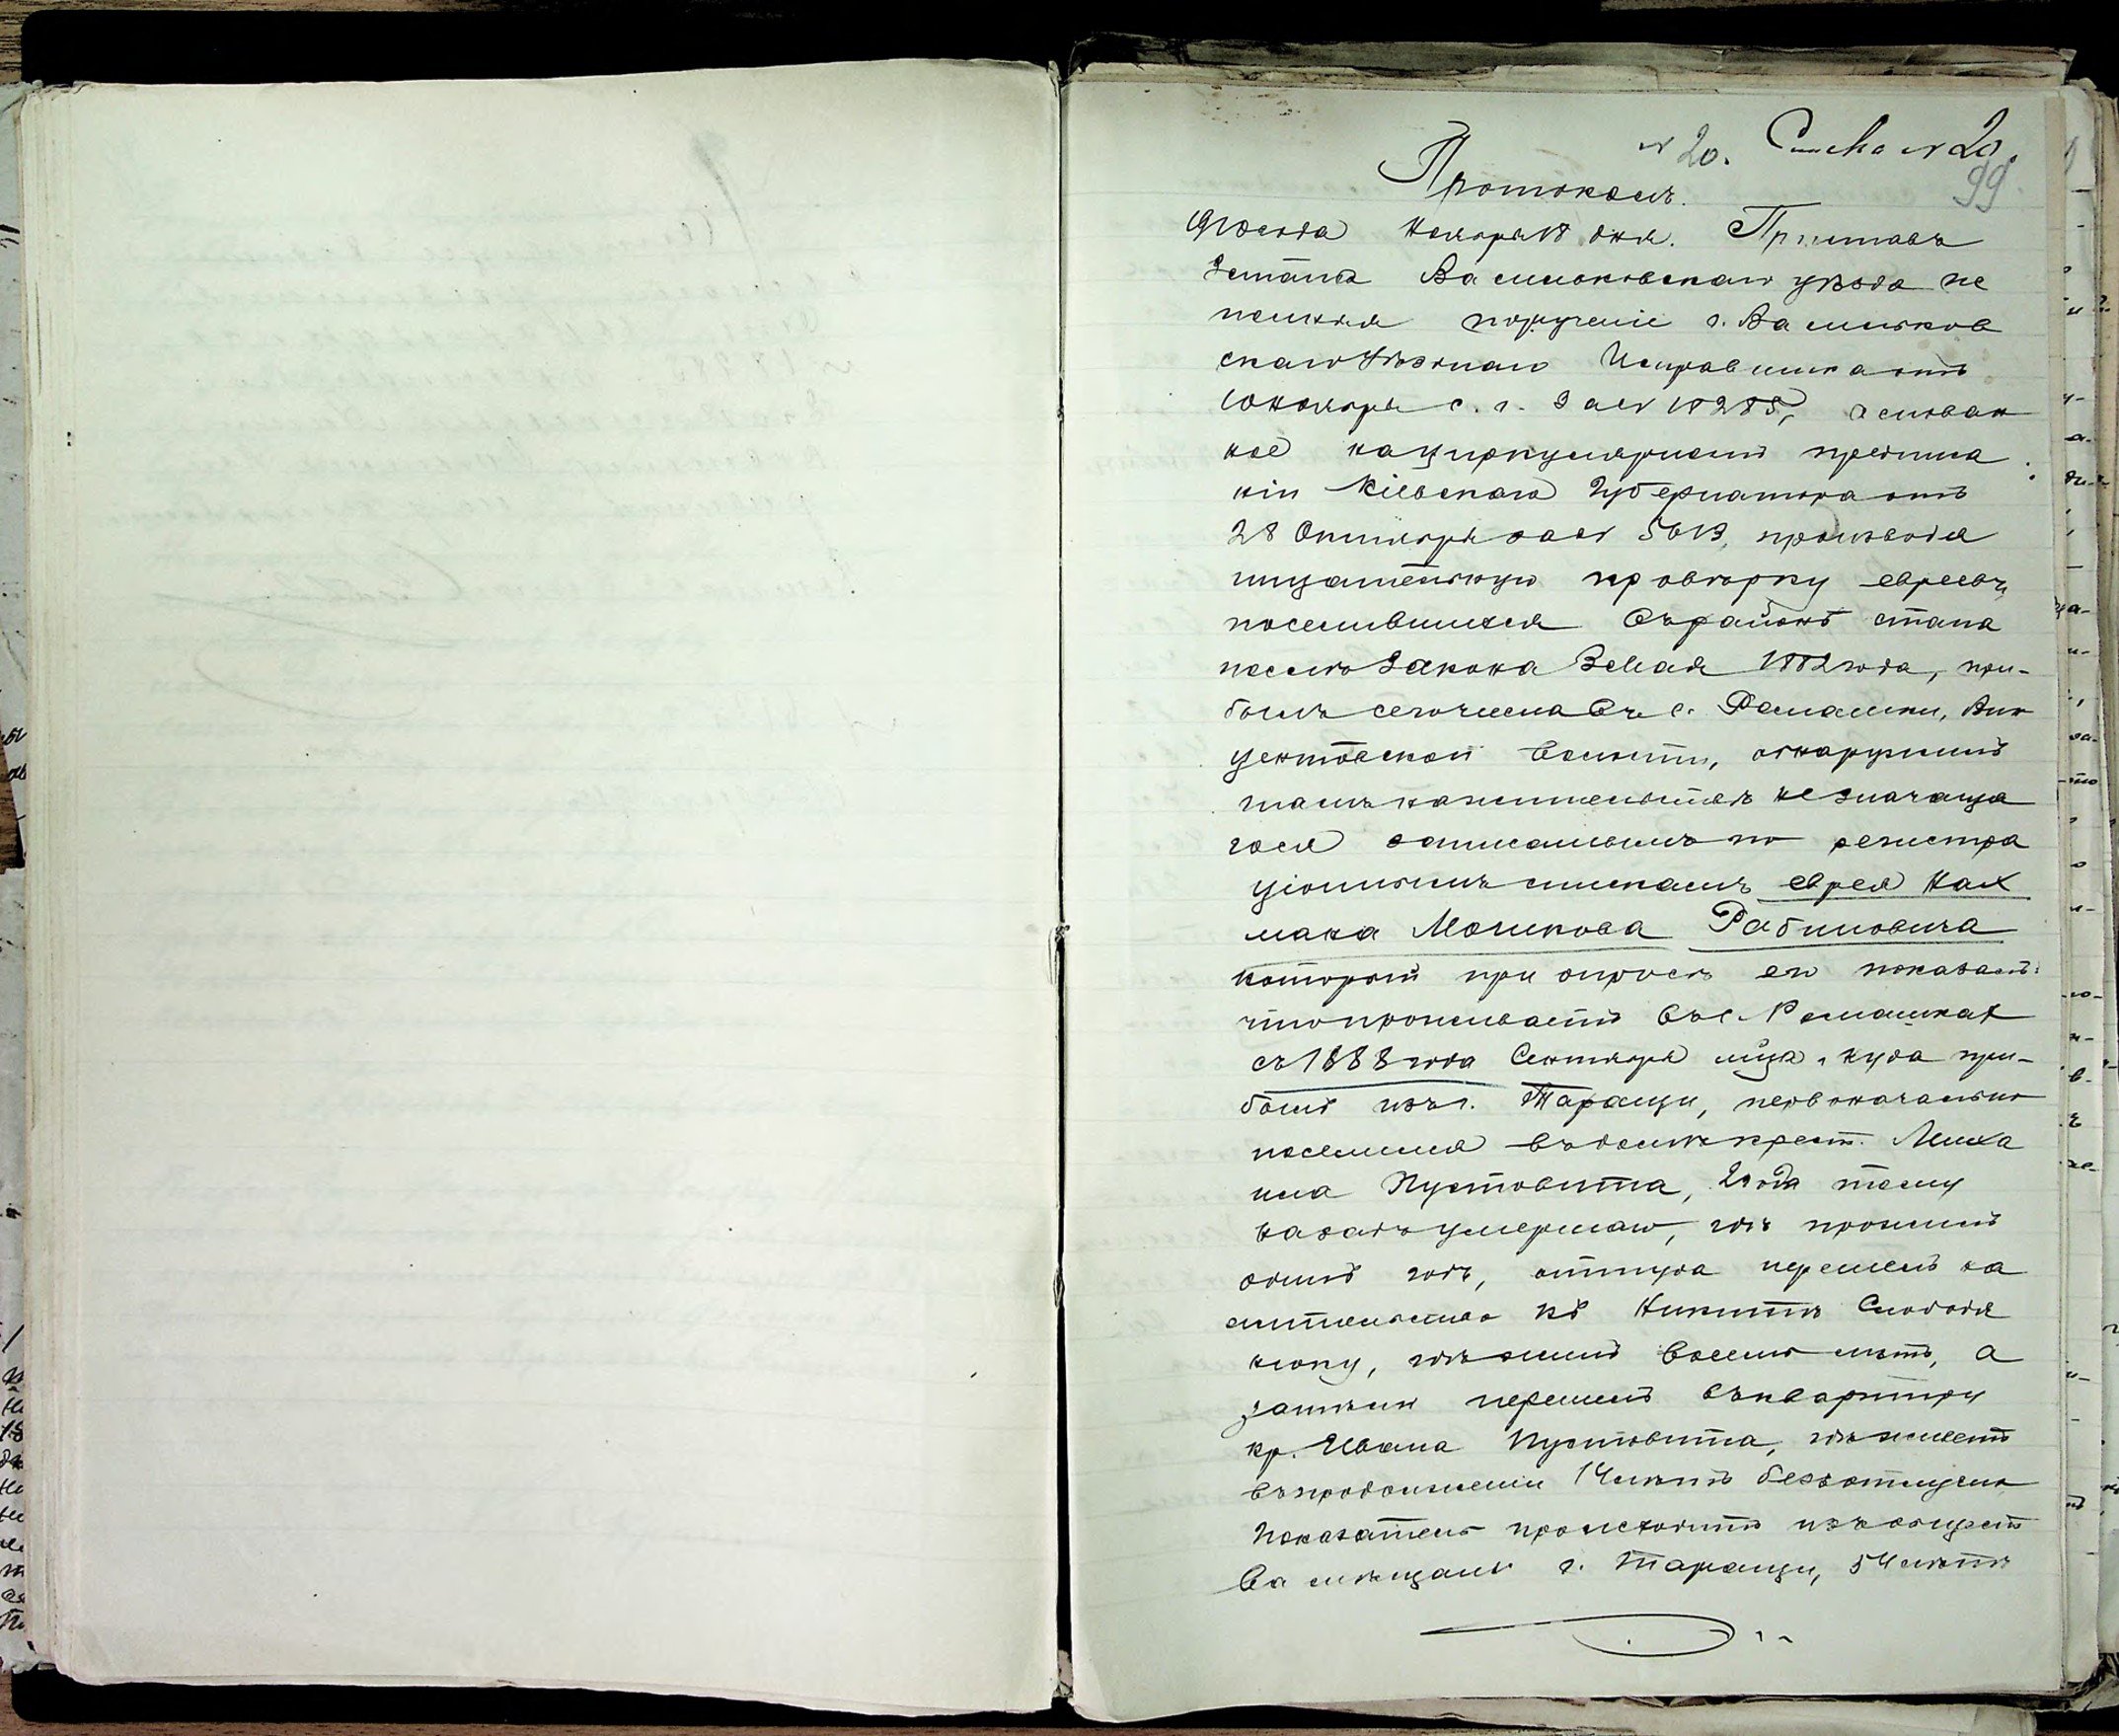 № 20. Списка № 20.
99
Протоколъ.
года Ноября 18 дня. Приставъ
3 стана Васильковскаго уѣзда ис
полняя порученіе г. Васильков
скаго Уѣзднаго Исправника отъ
10 ноября с. г. за № 18285, основан
ное на циркулярномъ предписа
ніи Кіевскаго Губернатора отъ
28 Октября за № 5613, производя
тщательную провѣрку евреевъ,
поселившихся въ районѣ стана
послѣ Закона 3 Мая 1882 года, при-
былъ сего числа въ с. Ромашки, Вин
центовской волости, обнаружилъ
тамъ на жительствѣ не значаща
гося записаннымъ по регистра
ціоннымъ спискамъ еврея Нах
мана Мошкова Рабиновича
который при опросѣ его показалъ:
что проживаетъ въ с. Ромашках
съ 1888 года Сентября м-ца, куда при-
былъ изъ г. Таращи, первоначально
поселился въ домѣ крест. Миха
ила Пустовита, 2 года тому
назадъ умершаго, гдѣ прожилъ
одинъ годъ, оттуда перешелъ на
жительство къ Никитѣ Слободя
нюку, гдѣ жилъ восемь лѣтъ, а
затѣмъ перешелъ въ квартиру
кр. Ивана Пустовита, гдѣ живетъ
въ продолженіи 14 лѣтъ безотлучно
Показатель происходитъ изъ общест
ва мѣщанъ г. Таращи, 54 лѣтъ